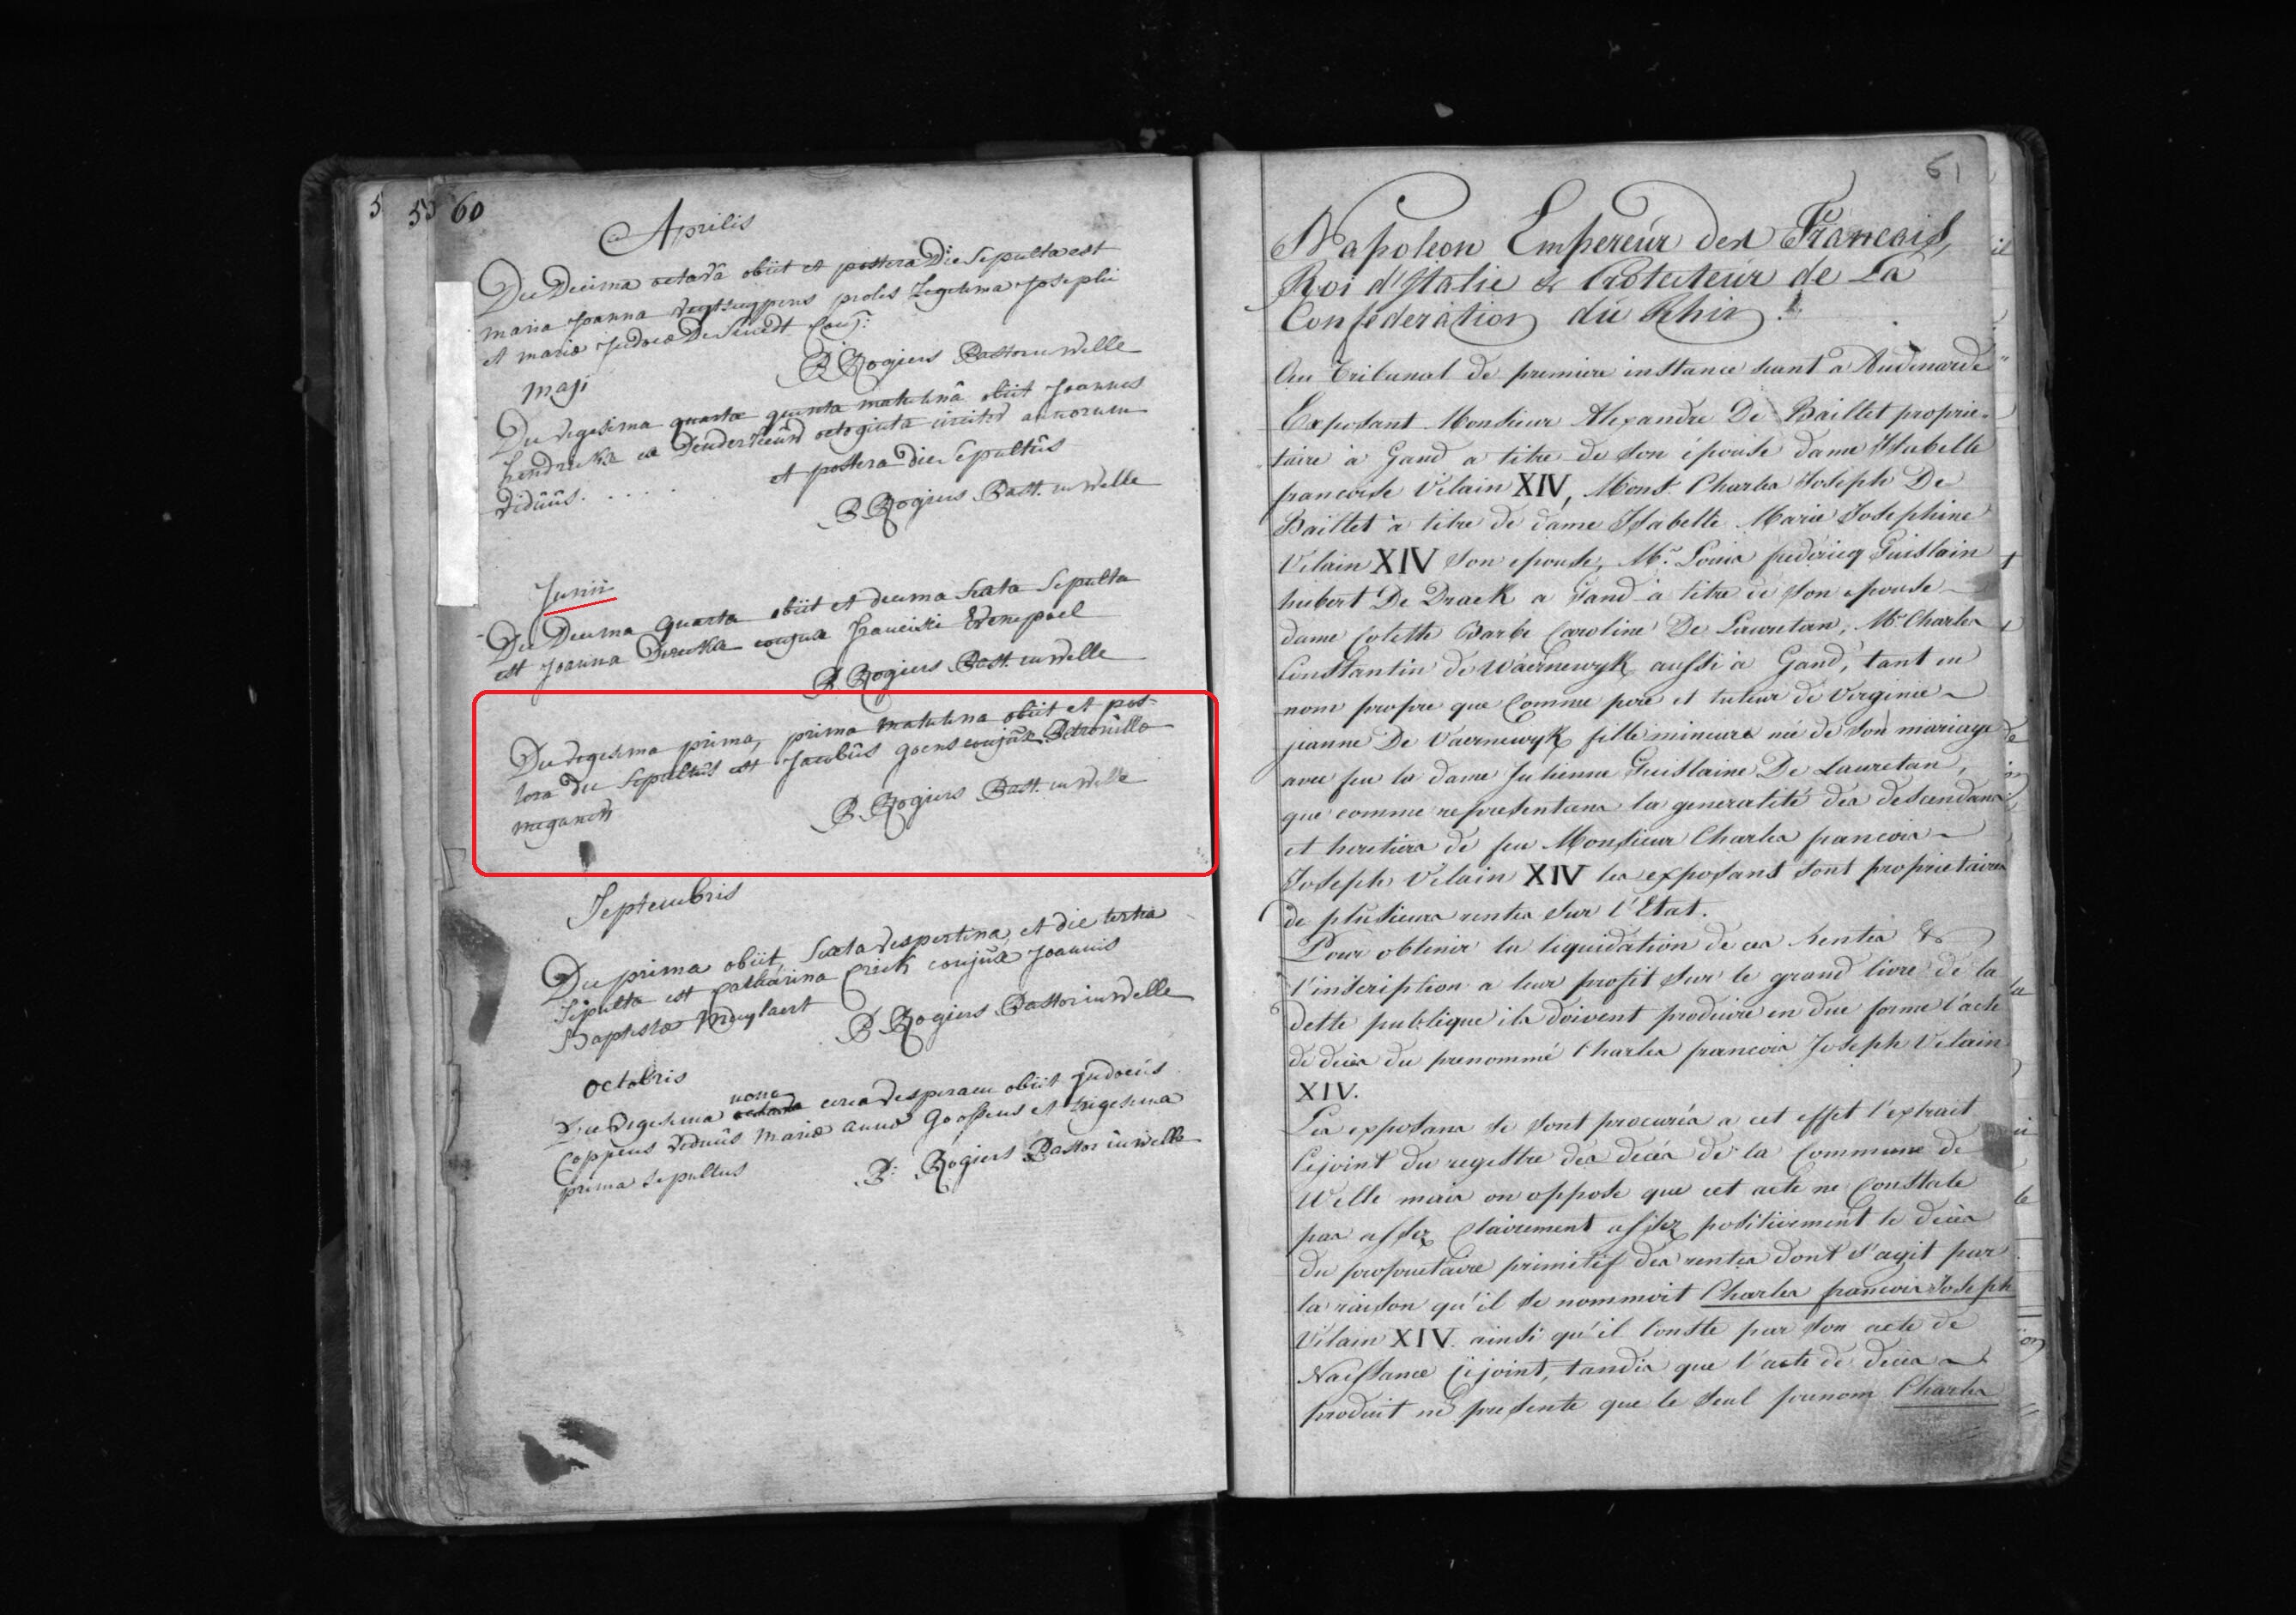 5 55 60
Aprilis
Die Decima octavâ obiit et postera Die Sepulta est
maria Joanna proles Legitima Josephi
et mariæ Judocæ De Smedt Conj:
P. Rogiers Pastor in Welle
maji
Die vigesima quarta quinta matutinâ obiit Joannes
Hendrickx ex Denderleeuw octoginta circiter annorum
viduus. . . . . et postera die Sepultûs
P. Rogiers Past. in Welle
Junii
Die Decima quarta obiit et decima Sexta Sepulta
est Joanna conjux Francisci Wenepoel
P. Rogiers Past. in Welle
Die vigesima prima, prima matutina obiit et pos-
tera die Sepultûs est Jacobûs goens conjûx Petronillæ
meganck
P. Rogiers Past. in Welle
Septembris
Die prima obiit Sexta vespertina, et die tertia
Sepulta est Catharina Prick conjûx Joannis
Baptistæ Muylaert
P. Rogiers Pastor in Welle
octobris
nona
Die vigesima octava circa vesperam obiit Judocûs
Coppens viduûs Mariæ annæ Goossens et trigesima
prima sepultus
P: Rogiers Pastor in Welle
61
Napoleon Empereur des Francais,
Roi d'Italie & Protecteur de La
Confederation du Rhin.
Au Tribunal de premiere instance séant à Audenarde
Exposent Monsieur Alexandre De Baillet proprie-
taire à Gand a titre de son épouse dame Isabelle
francoise Vilain XIV, Mons. Charles Joseph De
Baillet à titre de dame Isabelle Marie Josephine
Vilain XIV son epouse, Mr. Louis fredericq Guislain
hubert De Draek a Gand à titre de son epouse
dame Colette Barbe Caroline De Lauretan, Mr. Charles
Constantin de Waernewyk aussi à Gand, tant en
nom propre que comme pere et tuteur de Virginie
jeanne De Vaernewyk fille mineure né de son mariage
avec feu la dame Julienne Guislaine De Lauretan,
que comme representans la generalité des descendans
et heretiers de feu Monsieur Charles francois
Joseph Vilain XIV les exposans sont proprietaires
de plusieurs rentes sur l'Etat.
Pour obtenir la liquidation de ces Rentes &
l'inscription a leur profit sur le grand livre de la
dette publique ils doivent produire en due forme l'acte
de décès du prenommé Charles francois Joseph Vilain
XIV.
Les exposans se sont procurés a cet effet l'extrait
Cijoint du registre des décès de la Commune de
Welle mais on oppose que cet acte ne Constate
pas assez Clairement assez positivement le décès
du proprietaire primitif des rentes dont s'agit par
la raison qu'il se nommoit Charles francois Joseph
Vilain XIV. ainsi qu'il Conste par son acte de
Naissance Cijoint, tandis que l'acte de décès
produit ne presente que le seul prenom Charles